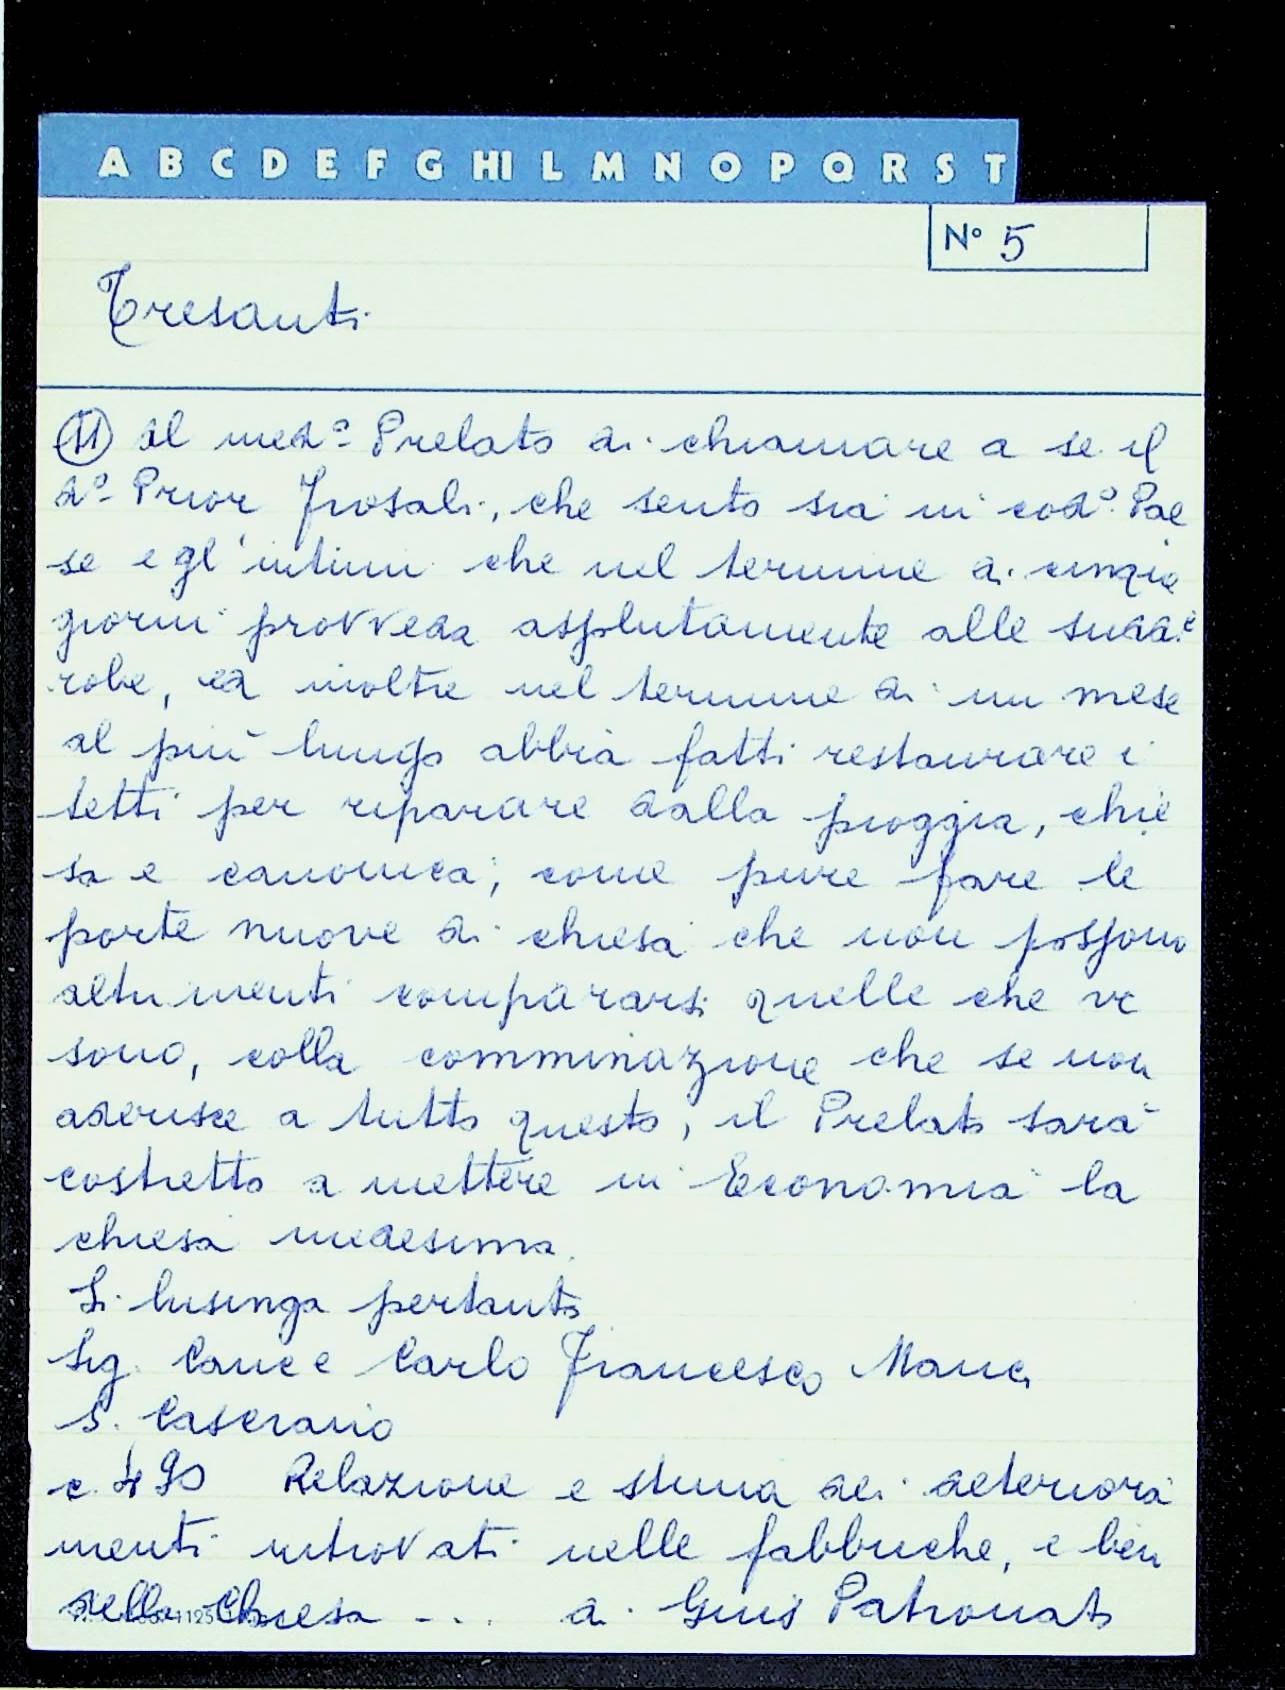 A B C D E F G HI L M N O P Q R S T
Nº 5
Tresanti
11 al medº Prelato di chiamare a se il
dº Prior Frosali, che sento sia in codº Pae
se e gl'intimi che nel termine di cinque
giorni provveda assolutamente alle sudd.e
robe, ed inoltre nel termine di un mese
al più lungo abbia fatti restaurare i
tetti per riparare dalla pioggia, chie
sa e canonica; come pure fare le
porte nuove di chiesa che non possono
altrimenti compararsi quelle che vi
sono, colla comminazione che se non
aderisce a tutto questo, il Prelato sarà
costretto a mettere in Economia la
chiesa medesima.
Si lusinga pertanto
Sig. Canc e Carlo Francesco Manci
S. Casciano
c. 490 Relazione e stima dei deteriora
menti ritrovati nelle fabbriche, e beni
della Chiesa ... di Gius Patronato